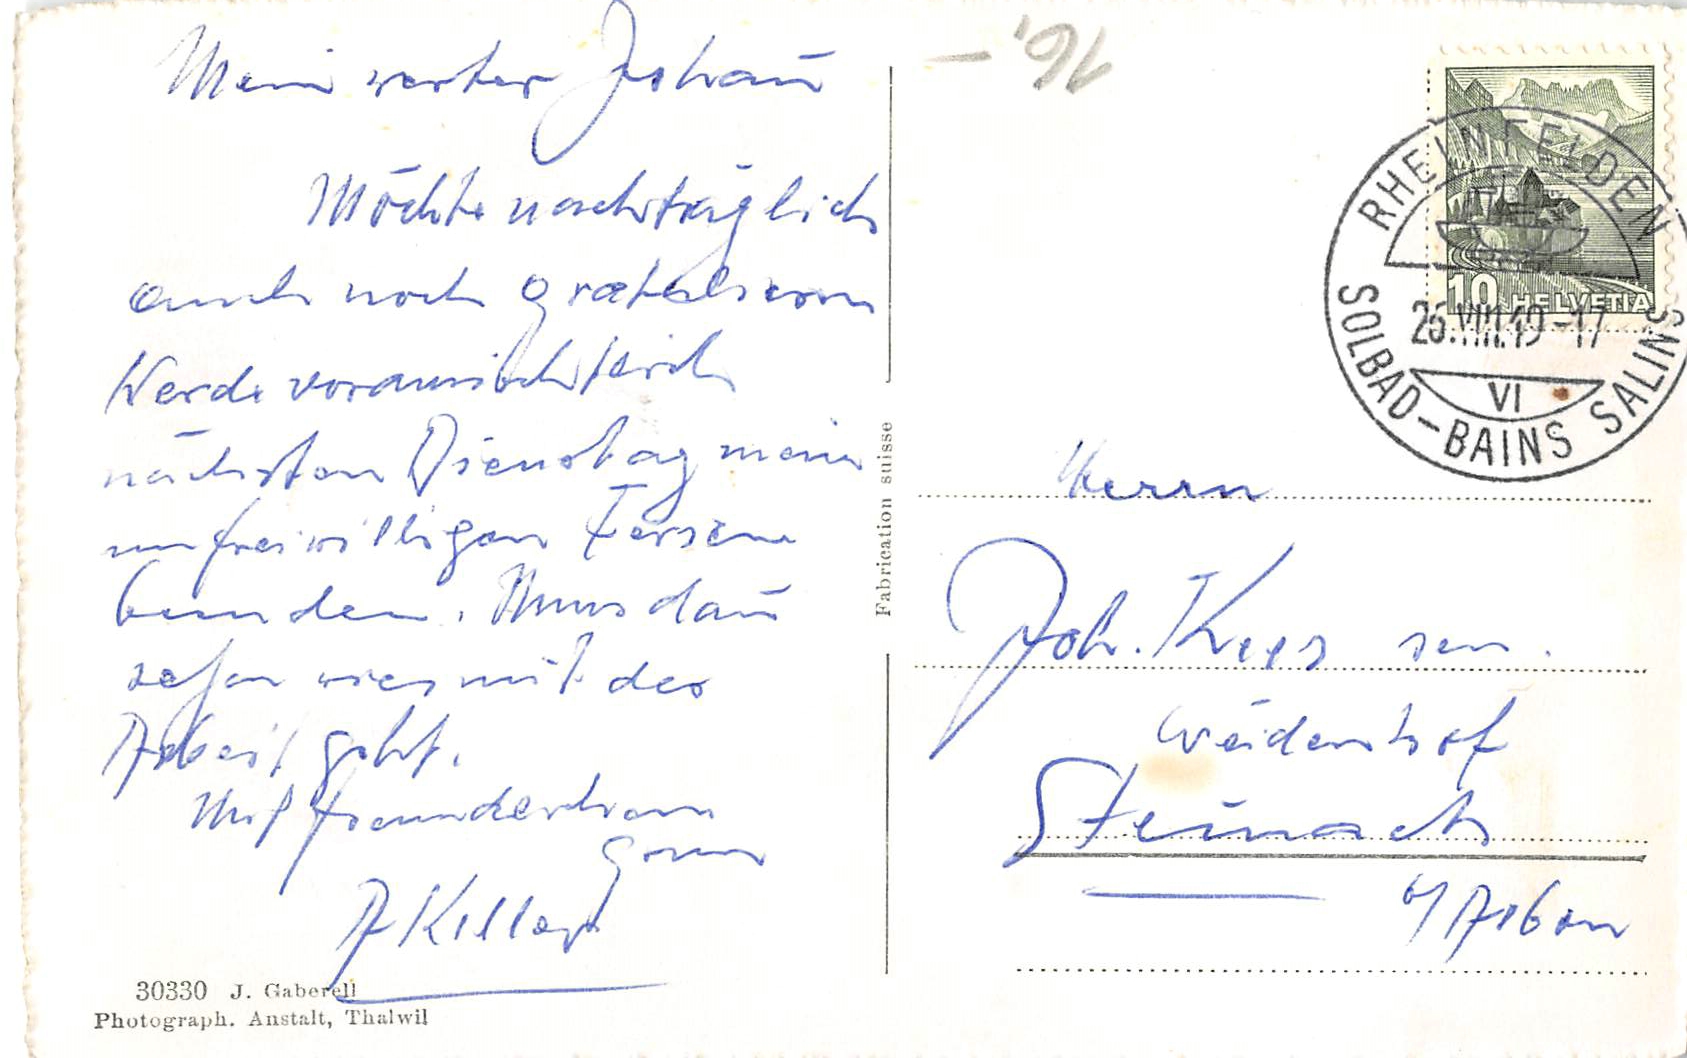 Mein werter Johañ
Möchte nachträglich
auch noch gratulieren
Werde voraussichtlich
nächsten Dienstag meine
unfreiwilligen Ferien
beenden. Muss dañ
sehen wies mit der
Arbeit geht.
Mit freundlichem
Gruss
A Killer
30330 J. Gaberell
Photograph. Anstalt, Thalwil
Fabrication suisse
16,-
10 HELVETIA
RHEINFELDEN
26.VIII.49-17
VI
SOLBAD-BAINS SALINS
Herrn
Joh. sen.
Weidenhof
Steinach
b/ Arbon